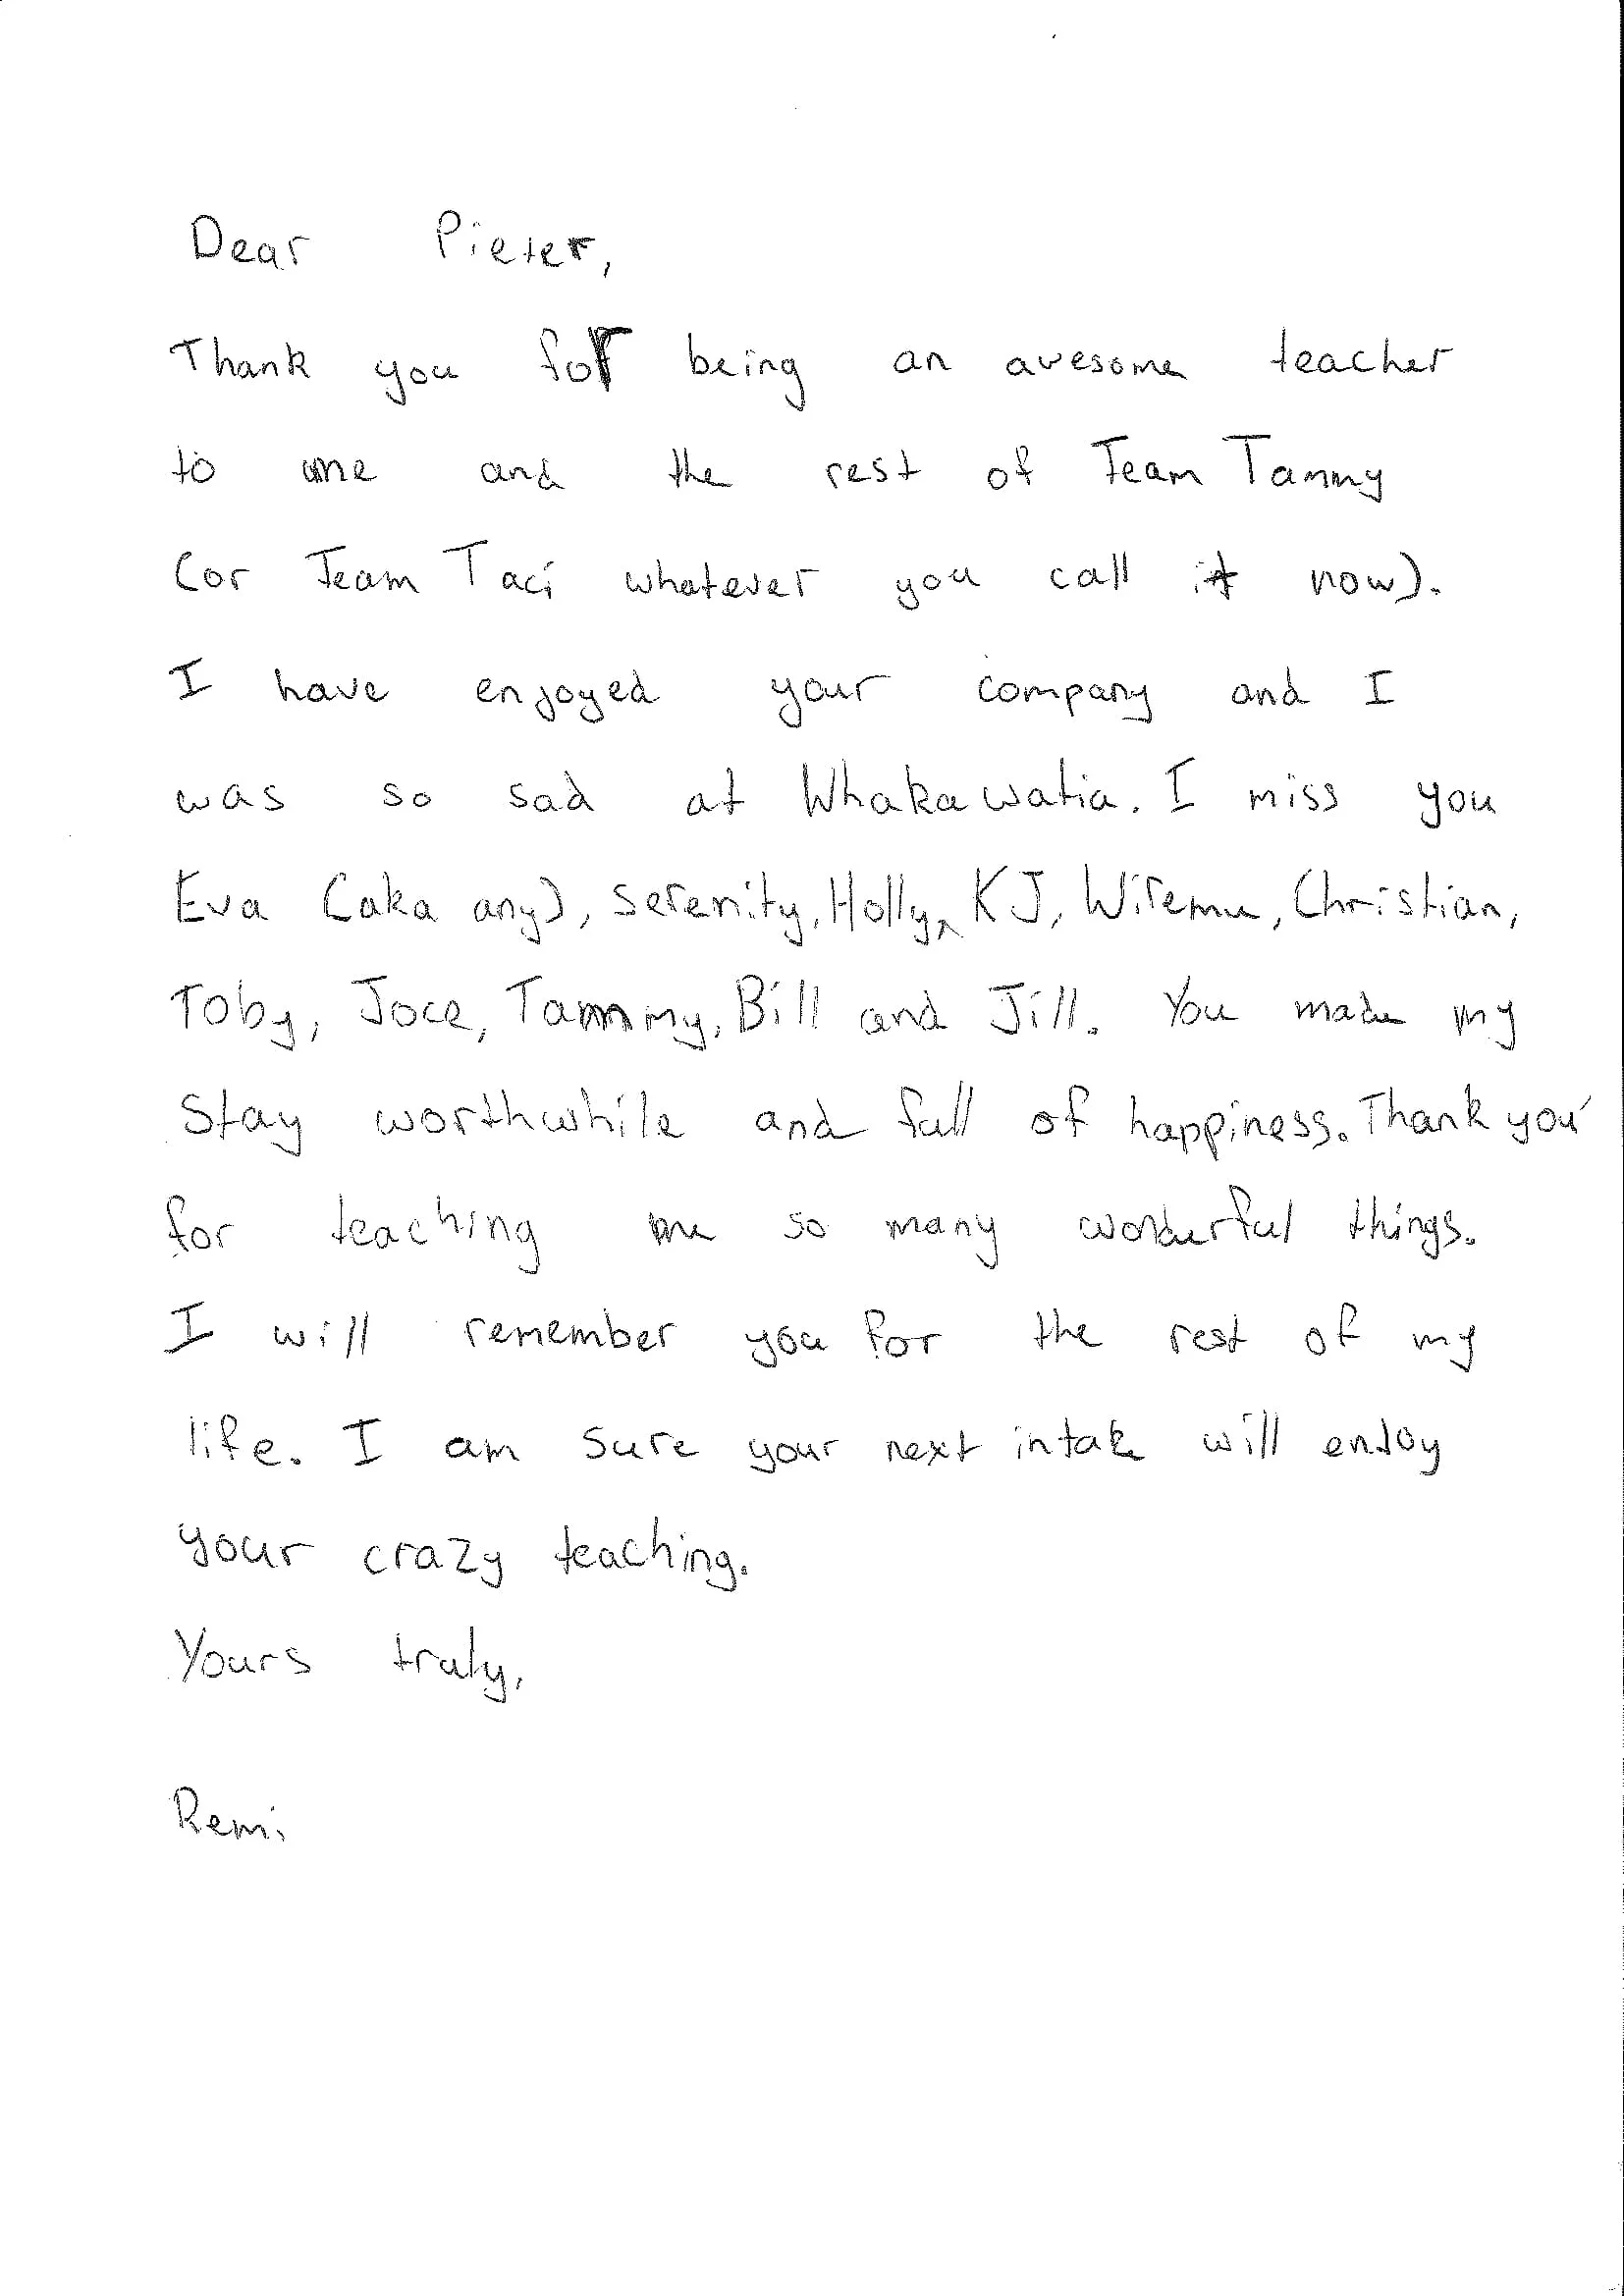 Dear Pieter,
Thank you for being an avesome teacher
to me and the rest of Team Tammy
(or Team Taci whatever you call it now).
I have enjoyed your company and I
was so sad at Whakawatia. I miss you
Eva (aka any), Serenity, Holly, KJ, Wiremu, Christian,
Toby, Joce, Tammy, Bill and Jill. You made my
Stay worthwhile and full of happiness. Thank you
for teaching me so many wonderful things.
I will remember you for the rest of my
life. I am sure your next intake will enjoy
your crazy teaching.
Yours truly,
Remi